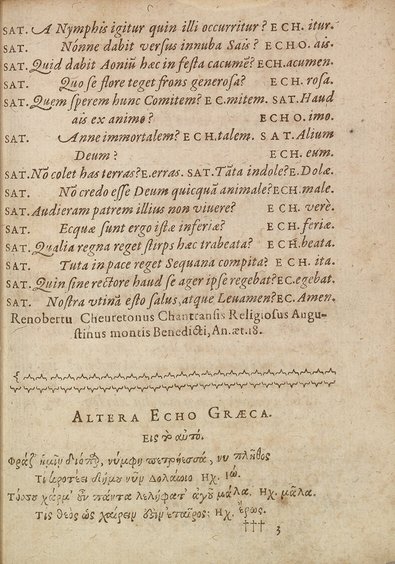 SAT. A Nymphis igitur quin illi occurritur? ECH. itur.
SAT. Nonne dabit versus innuba Sais? ECHO. ais.
SAT. Quid dabit Aoniũ hæc in festa cacumẽ? ECH. acumen.
SAT. Quo se flore teget frons generosa? ECH. rosa.
SAT. Quem sperem hunc Comitem? EC. mitem. SAT. Haud
ais ex animo? ECHO. imo.
SAT. Anne immortalem? ECH. talem. SAT. Alium
Deum? ECH. eum.
SAT. No colet has terras? E. erras. SAT. Tãta indole? E. Dolæ.
SAT. No credo esse Deum quicquã animale? ECH. male.
SAT. Audieram patrem illius non viuere? ECH. verè.
SAT. Ecquæ sunt ergo istæ inferiæ? ECH. feriæ.
SAT. Qualia regna reget stirps hæc trabeata? ECH. beata.
SAT. Tuta in pace reget Sequana compita? ECH. ita.
SAT. Quin sine rectore haud se ager ipse regebat? EC. egebat.
SAT. Nostra vtinã esto salus, atque Leuamen? EC. Amen.
Renobertu Cheuretonus Chantransis Religiosus Augu-
stinus montis Benedicti, An. æt. 18.
ALTERA ECHO GRÆCA.
Εις τὸ αὐτό.
νύμφη πετρήεσσά, νυ πλῆθος
Ηχ. ἰώ.
πάντα μάλα. Ηχ. μᾶλα.
Τις θεὸς ὡς χαίρειν ἑταῖρος; Ηχ. ἔρως.
††† 3